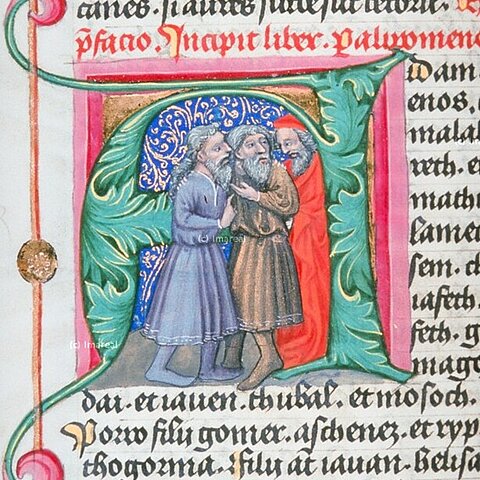 canes. si aures surdescat lectorū.
p̄facio. Incipit liber. Palipomenō
Adam
enos. c
malal
reth. e
math
lamec
sem. ch
iafeth.
feth. g
mago
dai. et iauen. thubal. et mosoch.
Porro filij gomer. aschenez. et ryp
thogorma. Filij at̄ iauan. helisa
(c) Imareal
(c) Imareal